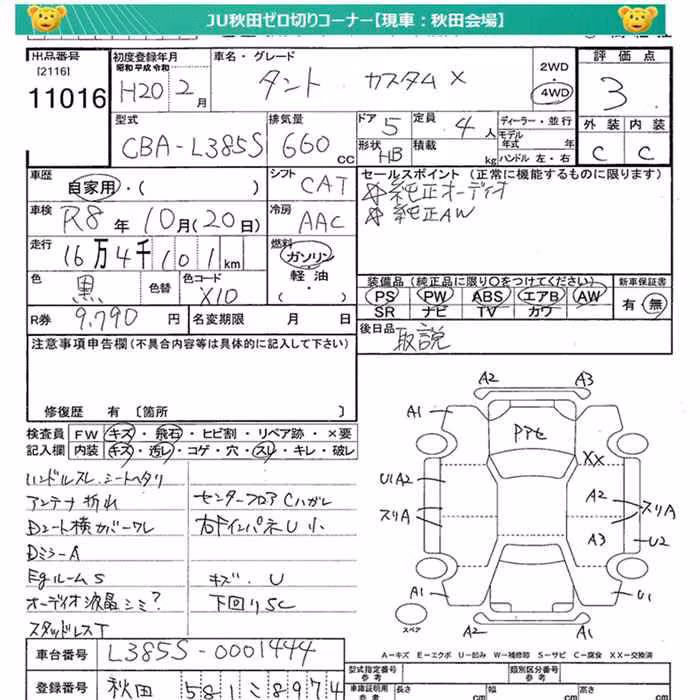 JU秋田ゼロ切りコーナー【現車：秋田会場】
出品番号 初度登録年月 車名・グレード 2WD 評価点
[2116] 昭和 平成 令和
11016 H20 2月 タント カスタム X 4WD 3
型式 排気量 ドア 5 定員 4人 ディーラー・並行 外装 内装
モデル年式 年式
CBA-L385S 660cc 形状 HB 積載 kg ハンドル 左・右 C C
車歴 自家用・( ) シフト CAT セールスポイント (正常に機能するものに限ります)
☆純正オーディオ
車検 R8年10月(20日) 冷房 AAC ☆純正AW
走行 16万4千101km 燃料 ガソリン
軽油
( ・ )
色 黒 色替 色コード X10 装備品 (純正品に限り○をつけてください) 新車保証書
PS PW ABS エアB AW 有・無
SR ナビ TV カワ
R券 9,790円 名変期限 月 日 後日品 取説
注意事項申告欄(不具合内容等は具体的に記入して下さい)
修復歴 有 [箇所 ]
検査員 FW キズ・飛石・ヒビ割・リペア跡・×要
記入欄 内装 キズ・汚レ・コゲ・穴・スレ・キレ・破レ
ハンドルスレ シートヘタリ
アンテナ折れ センターフロアCハガレ
Dシート横カバーワレ 右下インパネU小
DミラーA
EgルームS キズ・U
オーディオ液晶シミ? 下回りSC
スタッドレスT
A2 A3
A1 A1
PアセXX
U1A2 A2
スリA スリA
A3 U2
U1
A2 A1
スペア
A-キズ E-エクボ U-凹み W-補修跡 S-サビ C-腐食 XX-交換済
車台番号 L385S-0001444
型式指定番号 参考 類別区分番号 参考
登録番号 秋田 581 こ8974
車庫証明用 参考 長さ cm 幅 cm 高さ cm